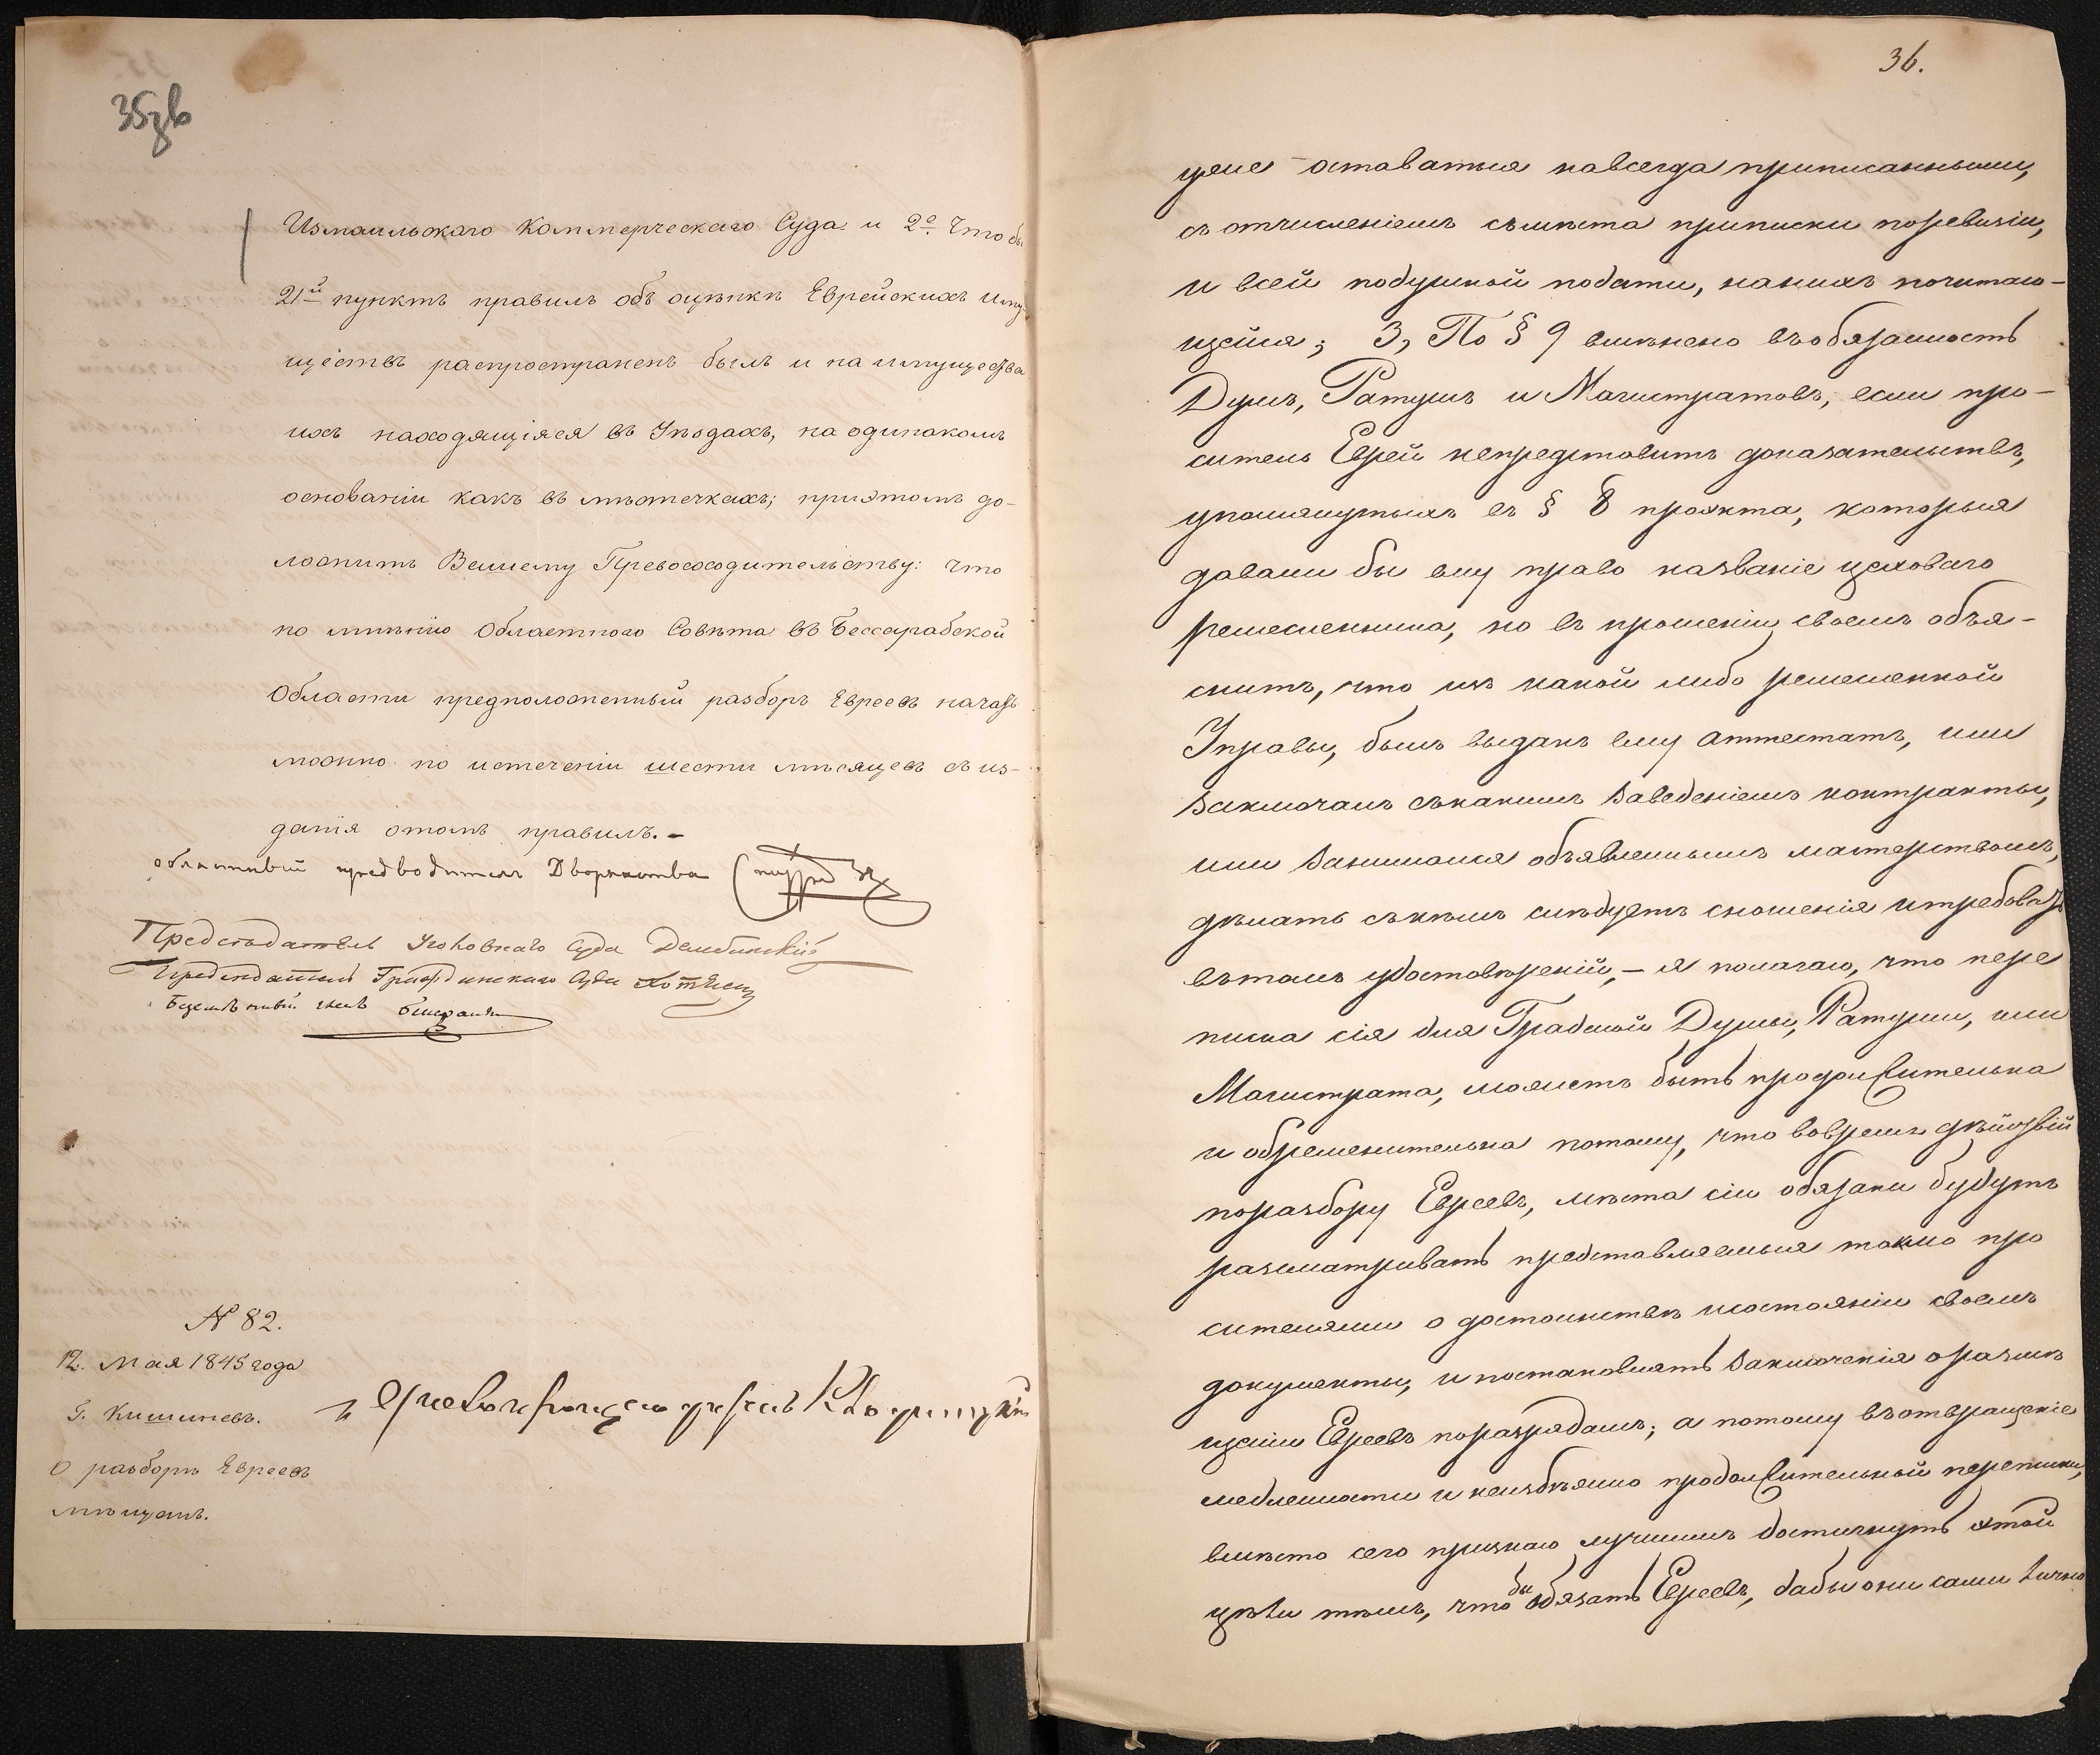 35 об
Измаильскаго Коммерческаго Суда и 2е. Что бы
21й пунктъ правилъ объ оцѣнкѣ Еврейскихъ иму-
ществъ распространенъ былъ и на имущества
ихъ находящіяся въ Уѣздахъ, на одинакомъ
основаніи какъ въ мѣстечкахъ; приэтомъ до-
ложить Вашему Превосходительству: что
по мнѣнію Областного Совѣта въ Бессарабской
Области предположенный разборъ Евреевъ начать
можно по истеченіи шести мѣсяцевъ съ из-
данія отомъ правилъ.-
областный предводитель Дворянства
Председатель Уголовнаго Суда
Председатель Гражданскаго Суда
N 82.
12. Мая 1845 года
Г. Кишиневъ.
О разборѣ Евреевъ
мѣщанъ.
36.
цехе оставаться навсегда приписанными,
съ отчисленіемъ съмѣста приписки поревизіи,
и всей подушной подати, наихъ почитаю-
щейся; 3, По § 9 вмѣнено въобязанность
Думъ, Ратушъ и Магистратовъ, если про-
ситель Еврей непредставитъ доказательствъ,
упомянутыхъ въ § 8 проэкта, которыя
давали бы ему право названіе цеховаго
ремесленника, но въ прошеніи своемъ объя-
снитъ, что изъ какой либо ремесленной
Управы, былъ выданъ ему аттестатъ, или
заключалъ съкакимъ заведеніемъ контракты,
или занимался объявленнымъ мастерствомъ,
дѣлать съкѣмъ слѣдуетъ сношенія итребовать
вътомъ удостовѣреній,- я полагаю, что пере
писка сія для Градской Думы, Ратуши, или
Магистрата, можетъ быть продолжительна
и обременительна потому, что вовремя дѣйствій
поразбору Евреевъ, мѣста сіи обязаны будутъ
разсматривать представляемыя токмо про
сителями о достоинствѣ исостояніи своемъ
документы, и постановлять заключенія оразмѣ
щеніи Евреевъ поразрядамъ; а потому въотвращеніе
медленности и неизбѣжно продолжительной переписки,
вмѣсто сего признаю лучшимъ достигнуть этой
цѣли тѣмъ, что бы обязать Евреевъ, дабы они сами лично